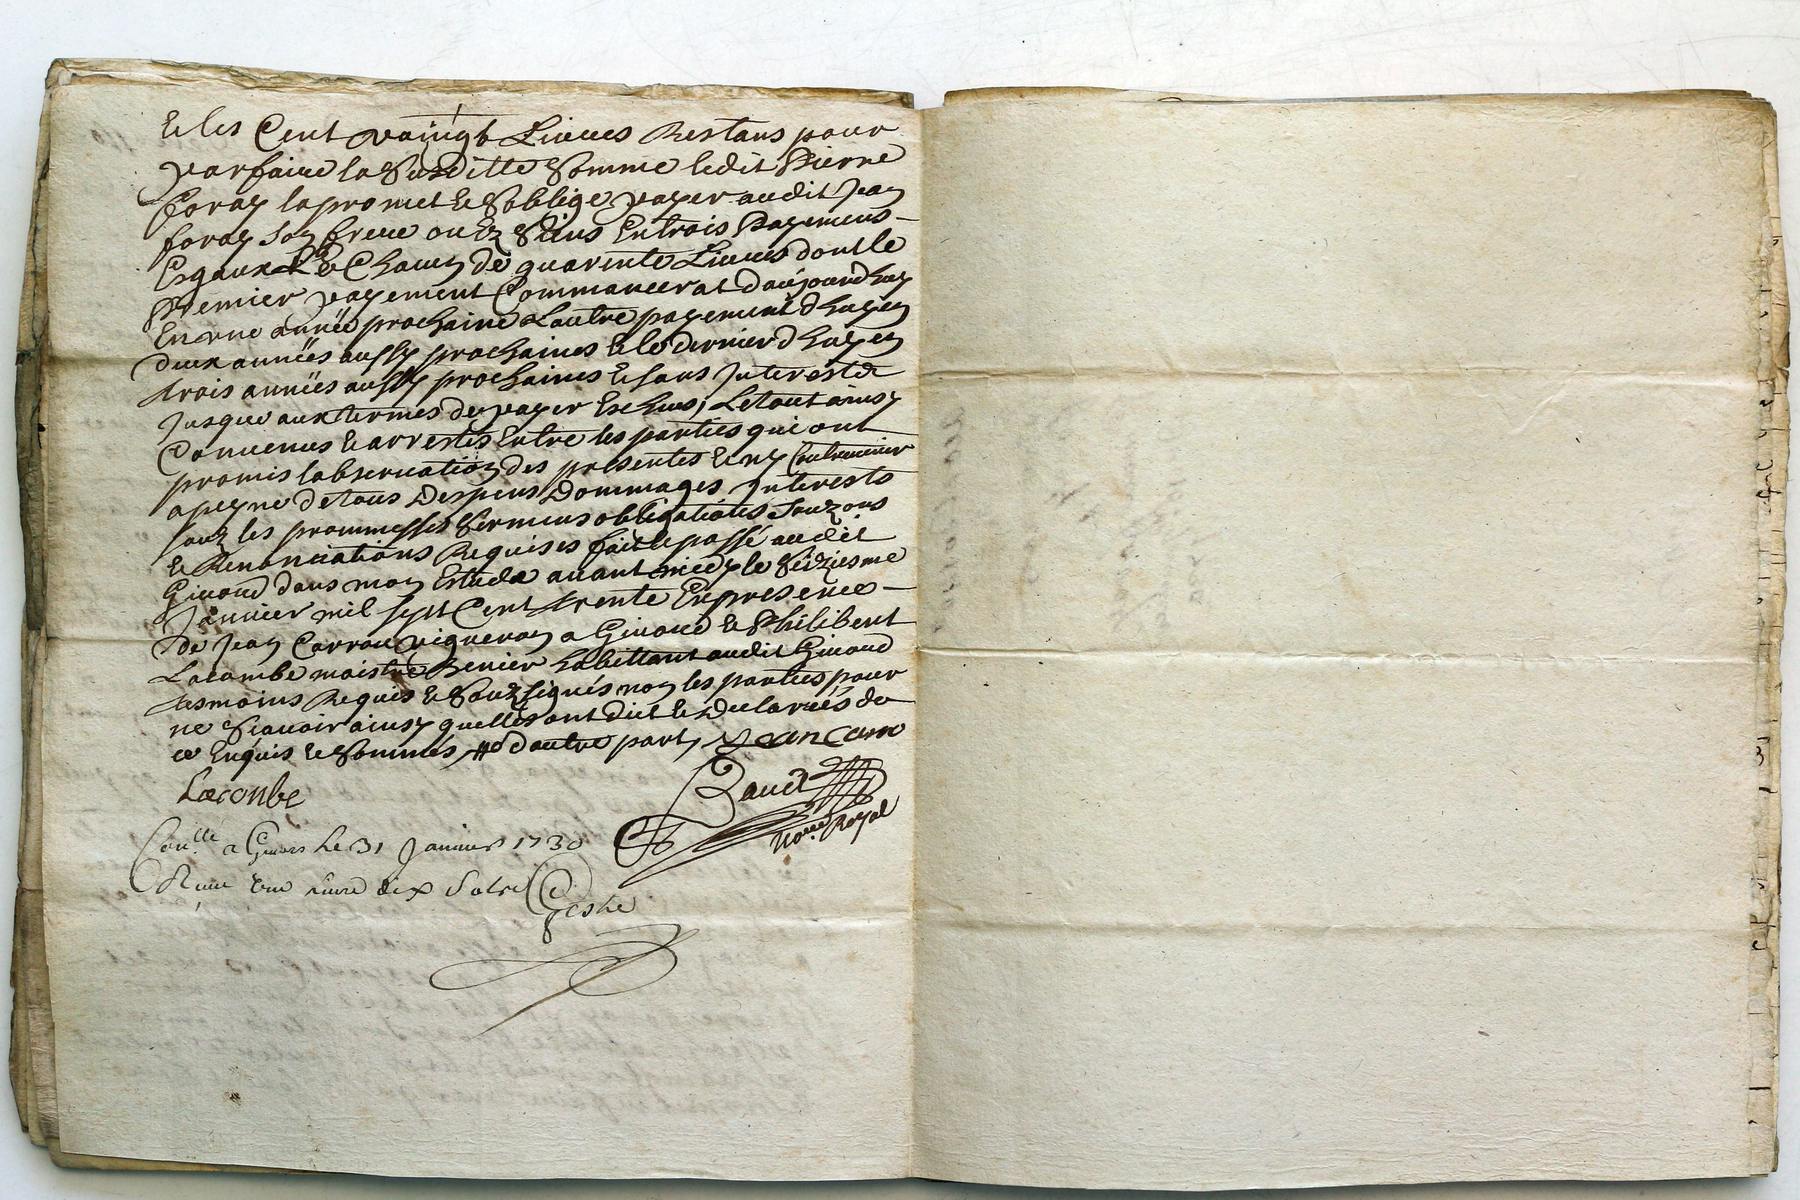 Et les Cent vaingt Livres Restans pour
parfaire la Susditte Somme ledit Pierre
foray la promet et Soblige payer audit Jean
foray son frere ou Ez Siens En trois Payemens
Esgaux de Chacun de quarente Livres dont le
Premier payement Commancerat daujourdhuy
En une année prochaine Lautre payement dhuy en
deux années aussy prochaines et le dernier dhuy en
trois années aussy prochaines et sans Interest
Jusque aux termes de payer Escheus, Le tout ainsy
Convenus et arrestés Entre les parties qui ont
promis labservation des presentes et ny Contrevenir
a peyne de tous Despens Dommages Interests
souz les prommesses Sermens obligations
et Renonciations Requises fait et passé audit
Givord dans mon Estude avant midy le Seiziesme
Janvier mil sept Cent trente En presence
de Jean Carron vigneron a Givord et Philibert
Lacombe maistre habittant audit Givord
tesmoins Requis et Souzsignés non les parties pour
ne Scavoir ainsy quelles ont dict et Declarées de
ce Enquis et Sommés, dautre part, Jean Caro
Lacombe
Baudt
No.re Royal
Con.llé a Givors le 31 Janvier 1730
Receu une livre dix Sols